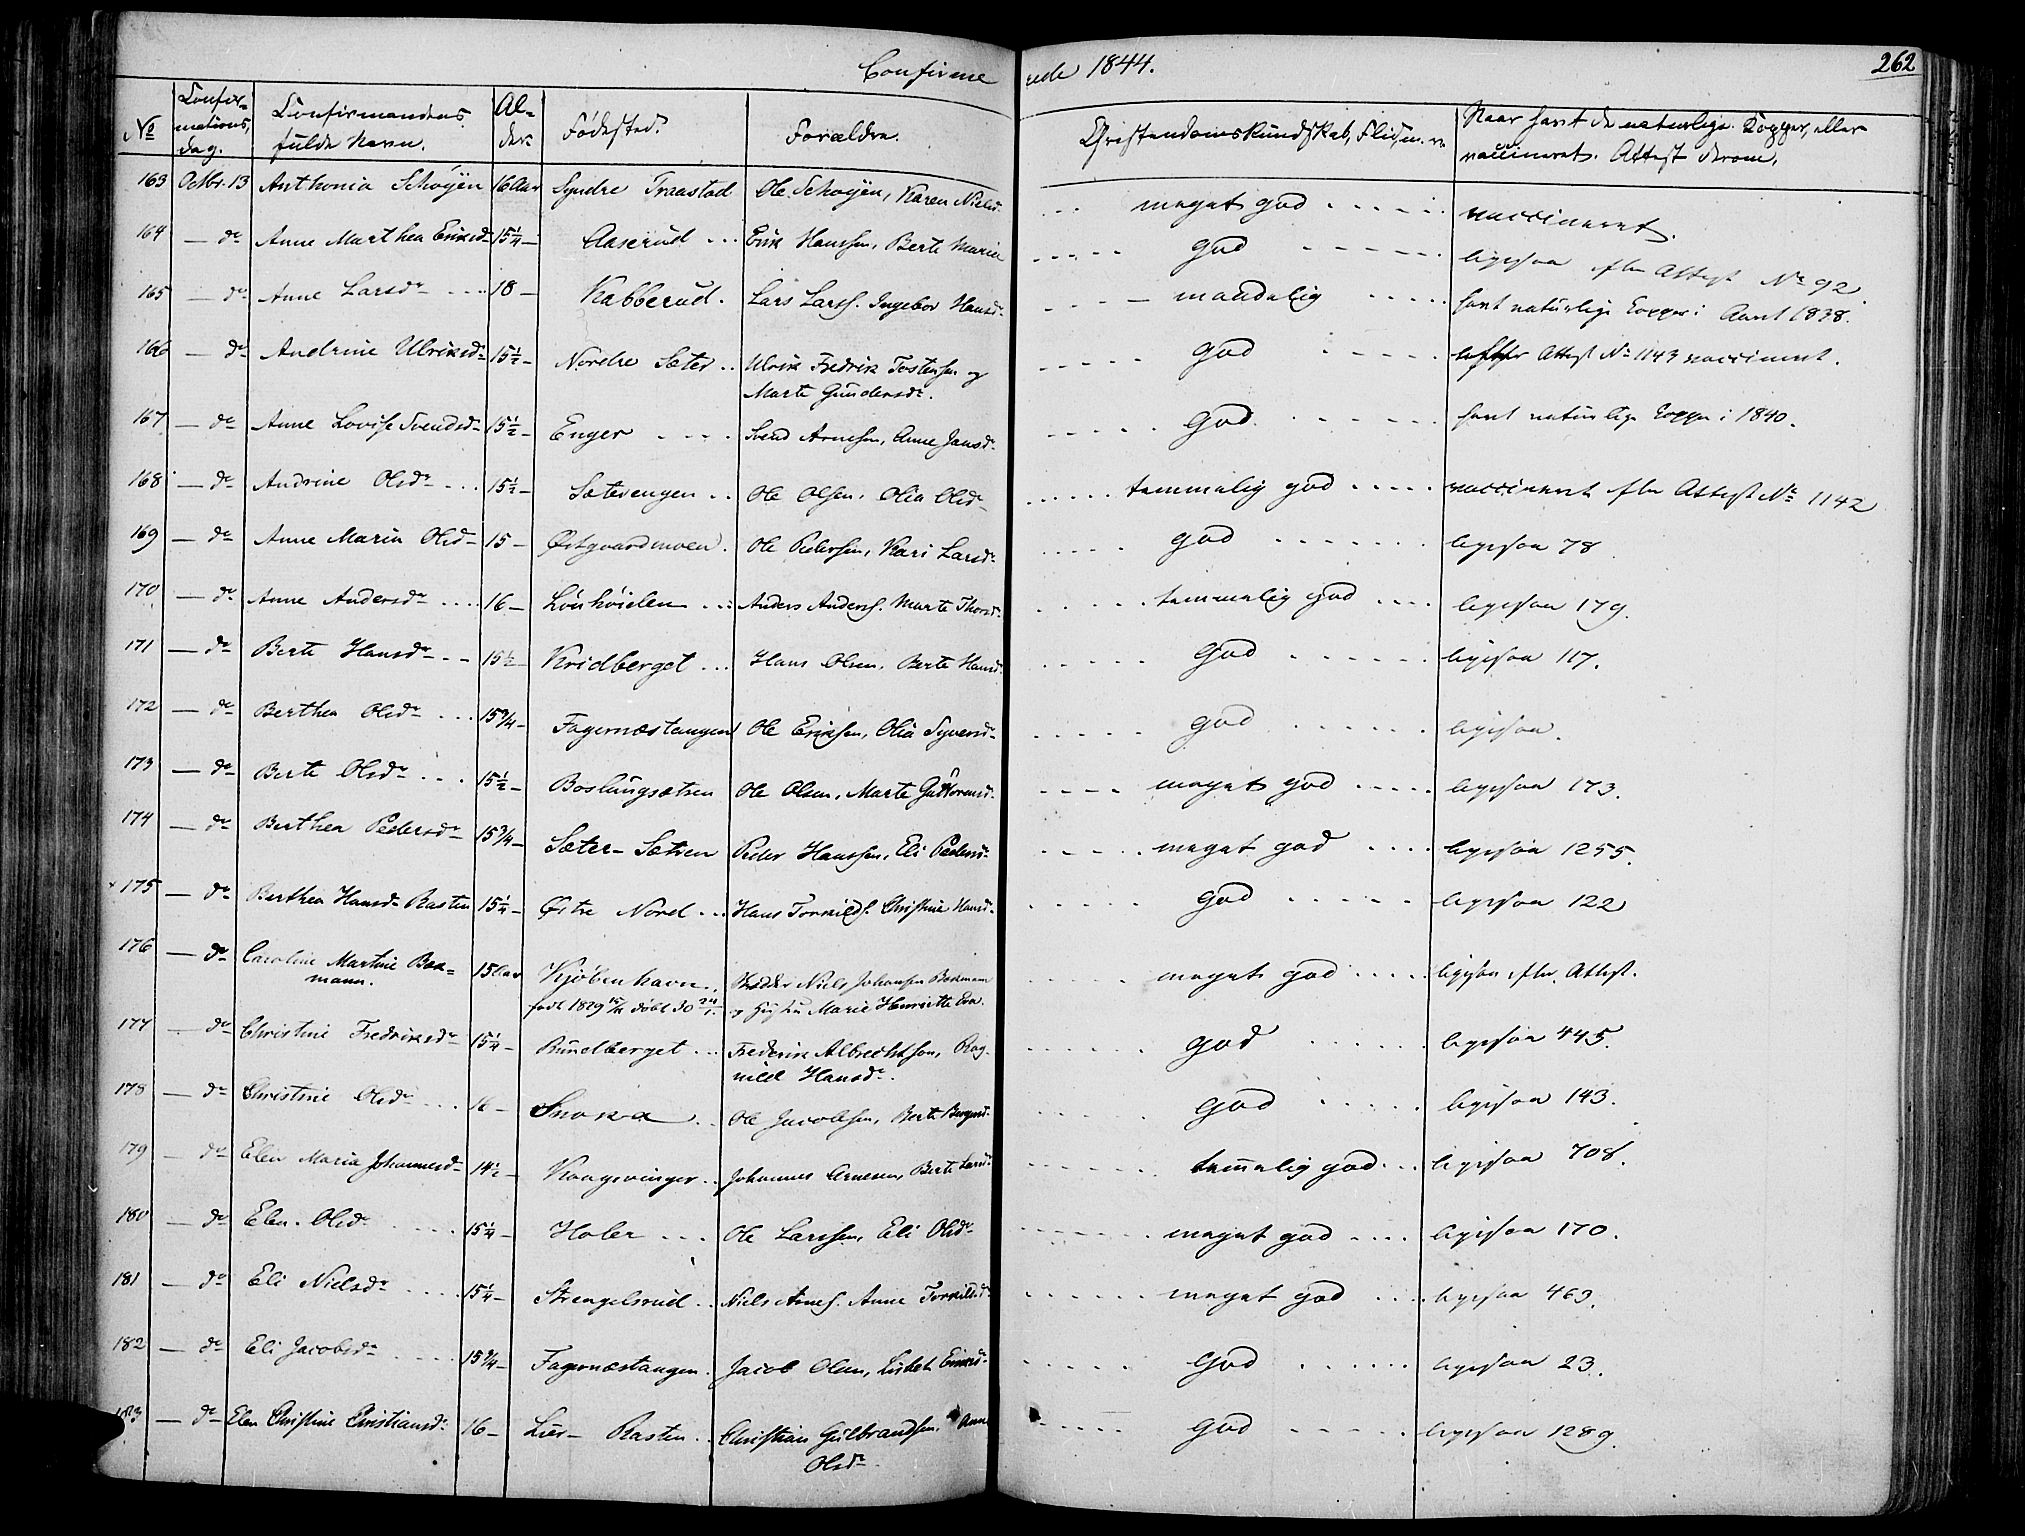 Confirme rede 1844. 262
No Confirmations, dag. Confirmandens fulde Navn. Alder Fødested. Forældre. Christendomskundskab, Flid, m. v. Naar havt de naturlige Kopper, eller vaccineret. Attest derom.
163 Octbr. 13 Anthonia Schøyen 16 Aar Syndre Traastad Ole Schøyen, Karen Nielsd. meget god vaccineret.
164 — do Anne Marthea Eriksd 15 1/4 — Aaserud Erik Hanssen, Berte Maria god ligesaa efter Attest No 92.
165 — do Anne Larsdr 18 — Kabberud. Lars Larss. Ingebor Hansd. maadelig havt naturlige Kopper i Aaret 1838.
166 — do Andrine Ulriksdr 15 1/2 — Nordre Sæter Ulrik Fredrik Tostensen og
Marte Gundersdr. god efter Attest No 1143 vaccineret.
167 — do Anne Lovise Svendsdr 15 1/2 — Enger Svend Arnesen, Anne Jansdr god havt naturlige Kopper i 1840.
168 — do Andrine Olsdr 15 1/2 — Sæterengen Ole Olsen, Olia Olsdr temmelig god vaccineret efter Attest No 1142
169 — do Anne Maria Olsd 15 — Østgaardmoen. Ole Pedersen, Kari Larsdr god ligesaa 78.
170 — do Anne Andersdr 16 — Lønhøielen Anders Anderss. Marte Thorsd. temmelig god ligesaa 179.
171 — do Berte Hansdr 15 1/2 — Kridberget Hans Olsen, Berte Hansd. god ligesaa 117.
172 — do Berthea Olsdr 15 3/4 — Fagernæstangen Ole Eriksen, Olia Syversd god ligesaa.
173 — do Berte Olsdr 15 1/2 — Boslungsætren Ole Olsen, Marte Guttormsd. meget god ligesaa 173.
174 — do Berthea Pedersdr 15 3/4 — Sæter-Sætren Peder Hanssen, Eli Pedersd. meget god ligesaa 1255.
175 — do Berthea Hansd. Rasten 15 1/4 — Østre Nord Hans Torkilds. Christine Hansd. god ligesaa 122
176 — do Caroline Martine Boe-
mann. 15 Aar Kjøbenhavn,
født 1829 døbt 30 Niels Johansen Boemann
og Hustru Marie Henriette Eva. meget god ligesaa efter Attest.
177 — do Christine Fredriksdr 15 1/4 — Rundberget Frederik Albrechtson, Rag-
nild Hansdr. god ligesaa 445.
178 — do Christine Olsdr 16 — Snoka Ole Jacobsen, Berte god ligesaa 143.
179 — do Elen Maria Johannesd 14 1/2 — Kongsvinger Johannes Arnesen, Berte Larsd. temmelig god ligesaa 708.
180 — do Elen Olsdr 15 1/4 — Holer Ole Larssen, Eli Olsdr meget god ligesaa 170.
181 — do Eli Nielsdr 15 1/4 — Strengelsrud Niels Arnes. Anne Torkildsdr meget god ligesaa 463.
182 — do Eli Jacobsdr 15 3/4 — Fagernæstangen. Jacob Olsen, Lisbet Eriksd. god ligesaa 23.
183 — do Elen Christine Christiansdr 16 — Lier-Rasten Christian Gulbrandsen, Anne
Olsdr god ligesaa 1289.